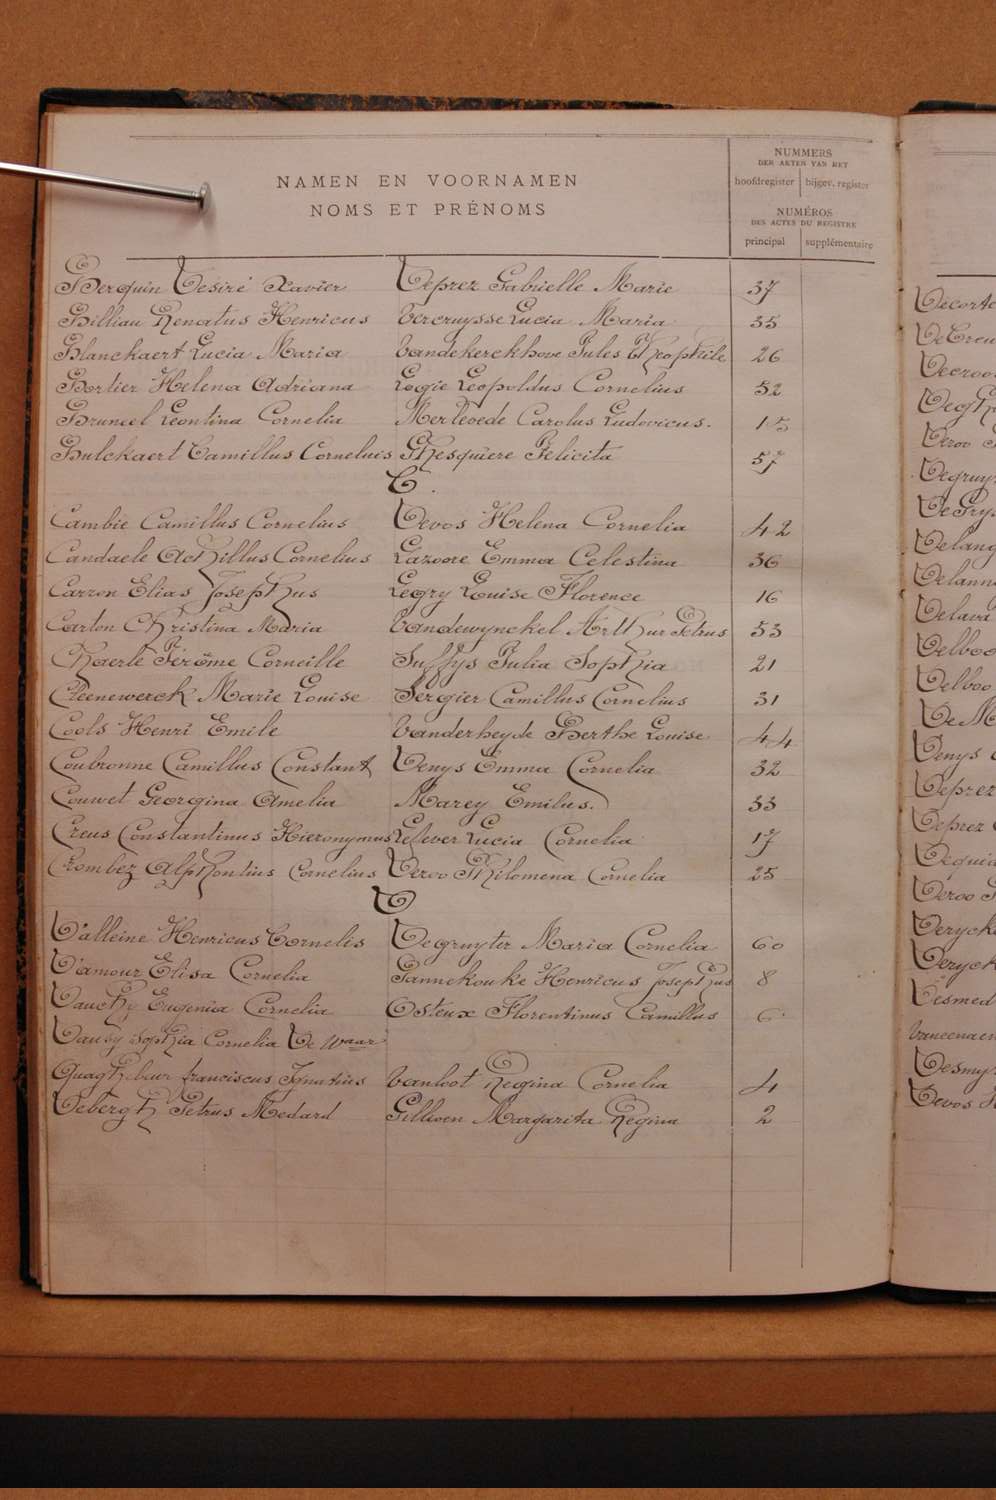 NUMMERS
DER AKTEN VAN HET
NAMEN EN VOORNAMEN
hoofdregister bijgev. register
NOMS ET PRÉNOMS
NUMÉROS
DES ACTES DU REGISTRE
principal supplémentaire
Berquin Desiré Xavier Deprez Gabrielle Marie 37
Billiau Renatus Henricus Vercruysse Lucia Maria 35
Blanckaert Lucia Maria Vandekerckhove Jules Theophile 26
Bortier Helena Adriana Logie Leopoldus Cornelius 52
Bruneel Leontina Cornelia Merlevede Carolus Ludovicus. 15
Bulckaert Camillus Cornelius Ghesquiere Felicita 57
C.
Cambie Camillus Cornelius Devos Helena Cornelia 42
Candaele Achillus Cornelius Lazoore Emma Celestina 36
Carron Elias Josephus Legry Louise Florence 16
Carton Christina Maria Vandewynckel Arthur Petrus 53
Chaerle Jérôme Corneille Suffys Julia Sophia 21
Cleenewerck Marie Louise Sergier Camillus Cornelius 31
Cools Henri Emile Vanderheyde Berthe Louise 44
Coubronne Camillus Constant Denys Emma Cornelia 32
Couwet Georgina Amelia Marey Emilus. 33
Creus Constantinus Hieronymus Lefever Lucia Cornelia 17
Crombez Alphonsius Cornelius Deroo Philomena Cornelia 25
D
D'alleine Henricus Cornelis Degruyter Maria Cornelia 60
D'amour Elisa Cornelia Pannekouke Henricus Josephus 8
Dauchy Eugenia Cornelia Osteux Florentinus Camillus 6
Dauby Sophia Cornelia De Waar
Quaghebeur franciscus Ignatius Vanloot Regina Cornelia 4
Debergh Petrus Medard Gillioen Margarita Regina 2